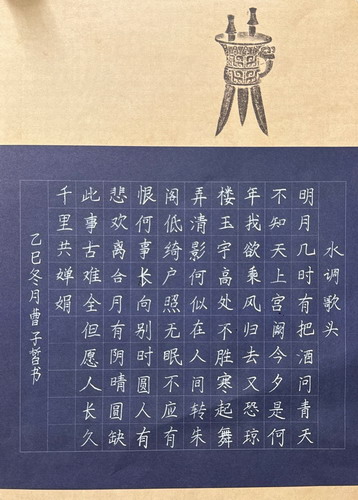 水调歌头
明月几时有把酒问青天
不知天上宫阙今夕是何
年我欲乘风归去又恐琼
楼玉宇高处不胜寒起舞
弄清影何似在人间转朱
阁低绮户照无眠不应有
恨何事长向别时圆人有
悲欢离合月有阴晴圆缺
此事古难全但愿人长久
千里共婵娟
乙巳冬月曹子哲书